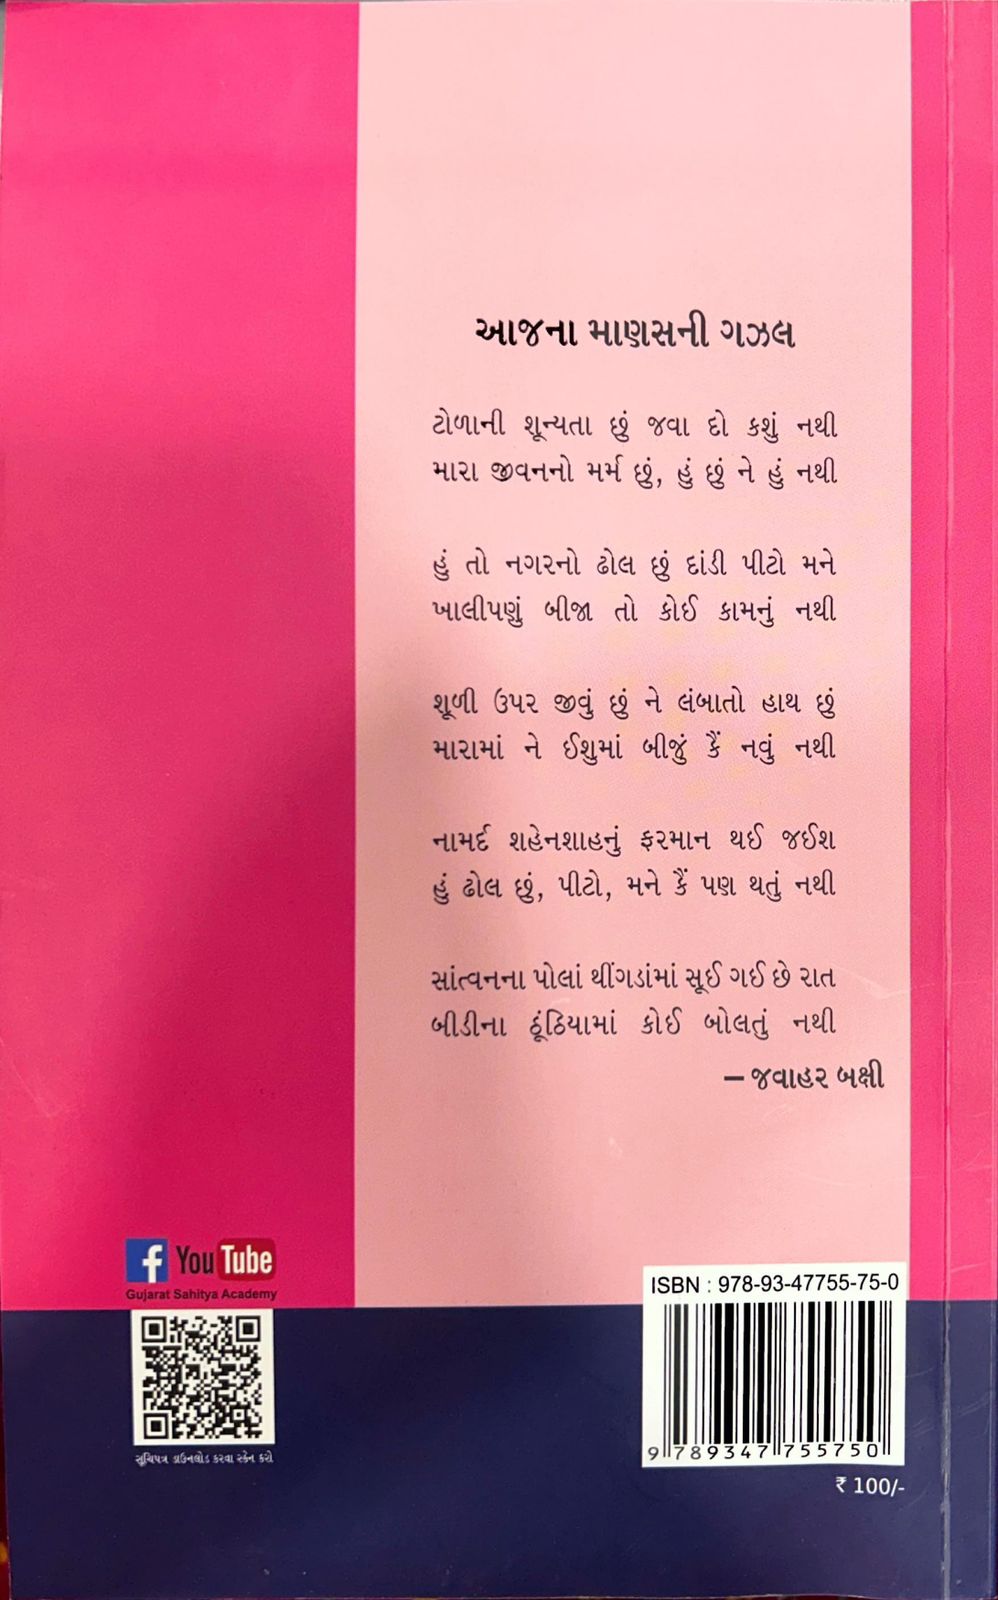 આજના માણસની ગઝલ
ટોળાની શૂન્યતા છું જવા દો કશું નથી
મારા જીવનનો મર્મ છું, હું છું ને હું નથી
હું તો નગરનો ઢોલ છું દાંડી પીટો મને
ખાલીપણું બીજા તો કોઈ કામનું નથી
શૂળી ઉપર જીવું છું ને લંબાતો હાથ છું
મારામાં ને ઈશુમાં બીજું કૈં નવું નથી
નામર્દ શહેનશાહનું ફરમાન થઈ જઈશ
હું ઢોલ છું, પીટો, મને કૈં પણ થતું નથી
સાંત્વનના પોલાં થીંગડાંમાં સૂઈ ગઈ છે રાત
બીડીના ઠૂંઠિયામાં કોઈ બોલતું નથી
– જવાહર બક્ષી
f YouTube
Gujarat Sahitya Academy
સૂચિપત્ર ડાઉનલોડ કરવા સ્કેન કરો
ISBN : 978-93-47755-75-0
9 789347 755750
₹ 100/-